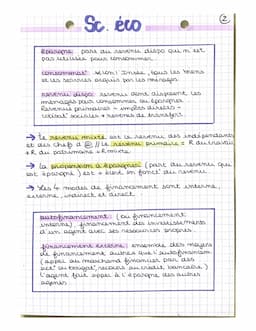 2
Sc. éco
épargne : part du revenu dispo qui n'est
pas utilisée pour consommer.
consommat° : selon l'Insee, tous les biens
et les services acquis par les ménages.
revenu dispo : revenu dont disposent les
ménages pour consommer ou épargner
Revenus primaires - impôts directs -
cotisat° sociales + revenus de transfert
→ Le revenu mixte est le revenu des indépendants
et des chefs d' // Le revenu primaire = R du travail
+ R du patrimoine + R mixte.
→ La propension à épargner (part du revenu qui
est épargné) est + élevé en fonct° du revenu
→ Les 4 modes de financement sont interne,
externe, indirect et direct.
autofinancement : (ou financement
interne) financement des investissements
d'un agent avec ses ressources propres.
financement externe : ensemble des moyens
de financement autres que l'autofinancem
(appel au marché financier par des
act° ou l'emprunt, recours au crédit bancaire)
l'agent fait appel à l'épargne des autres
agents.